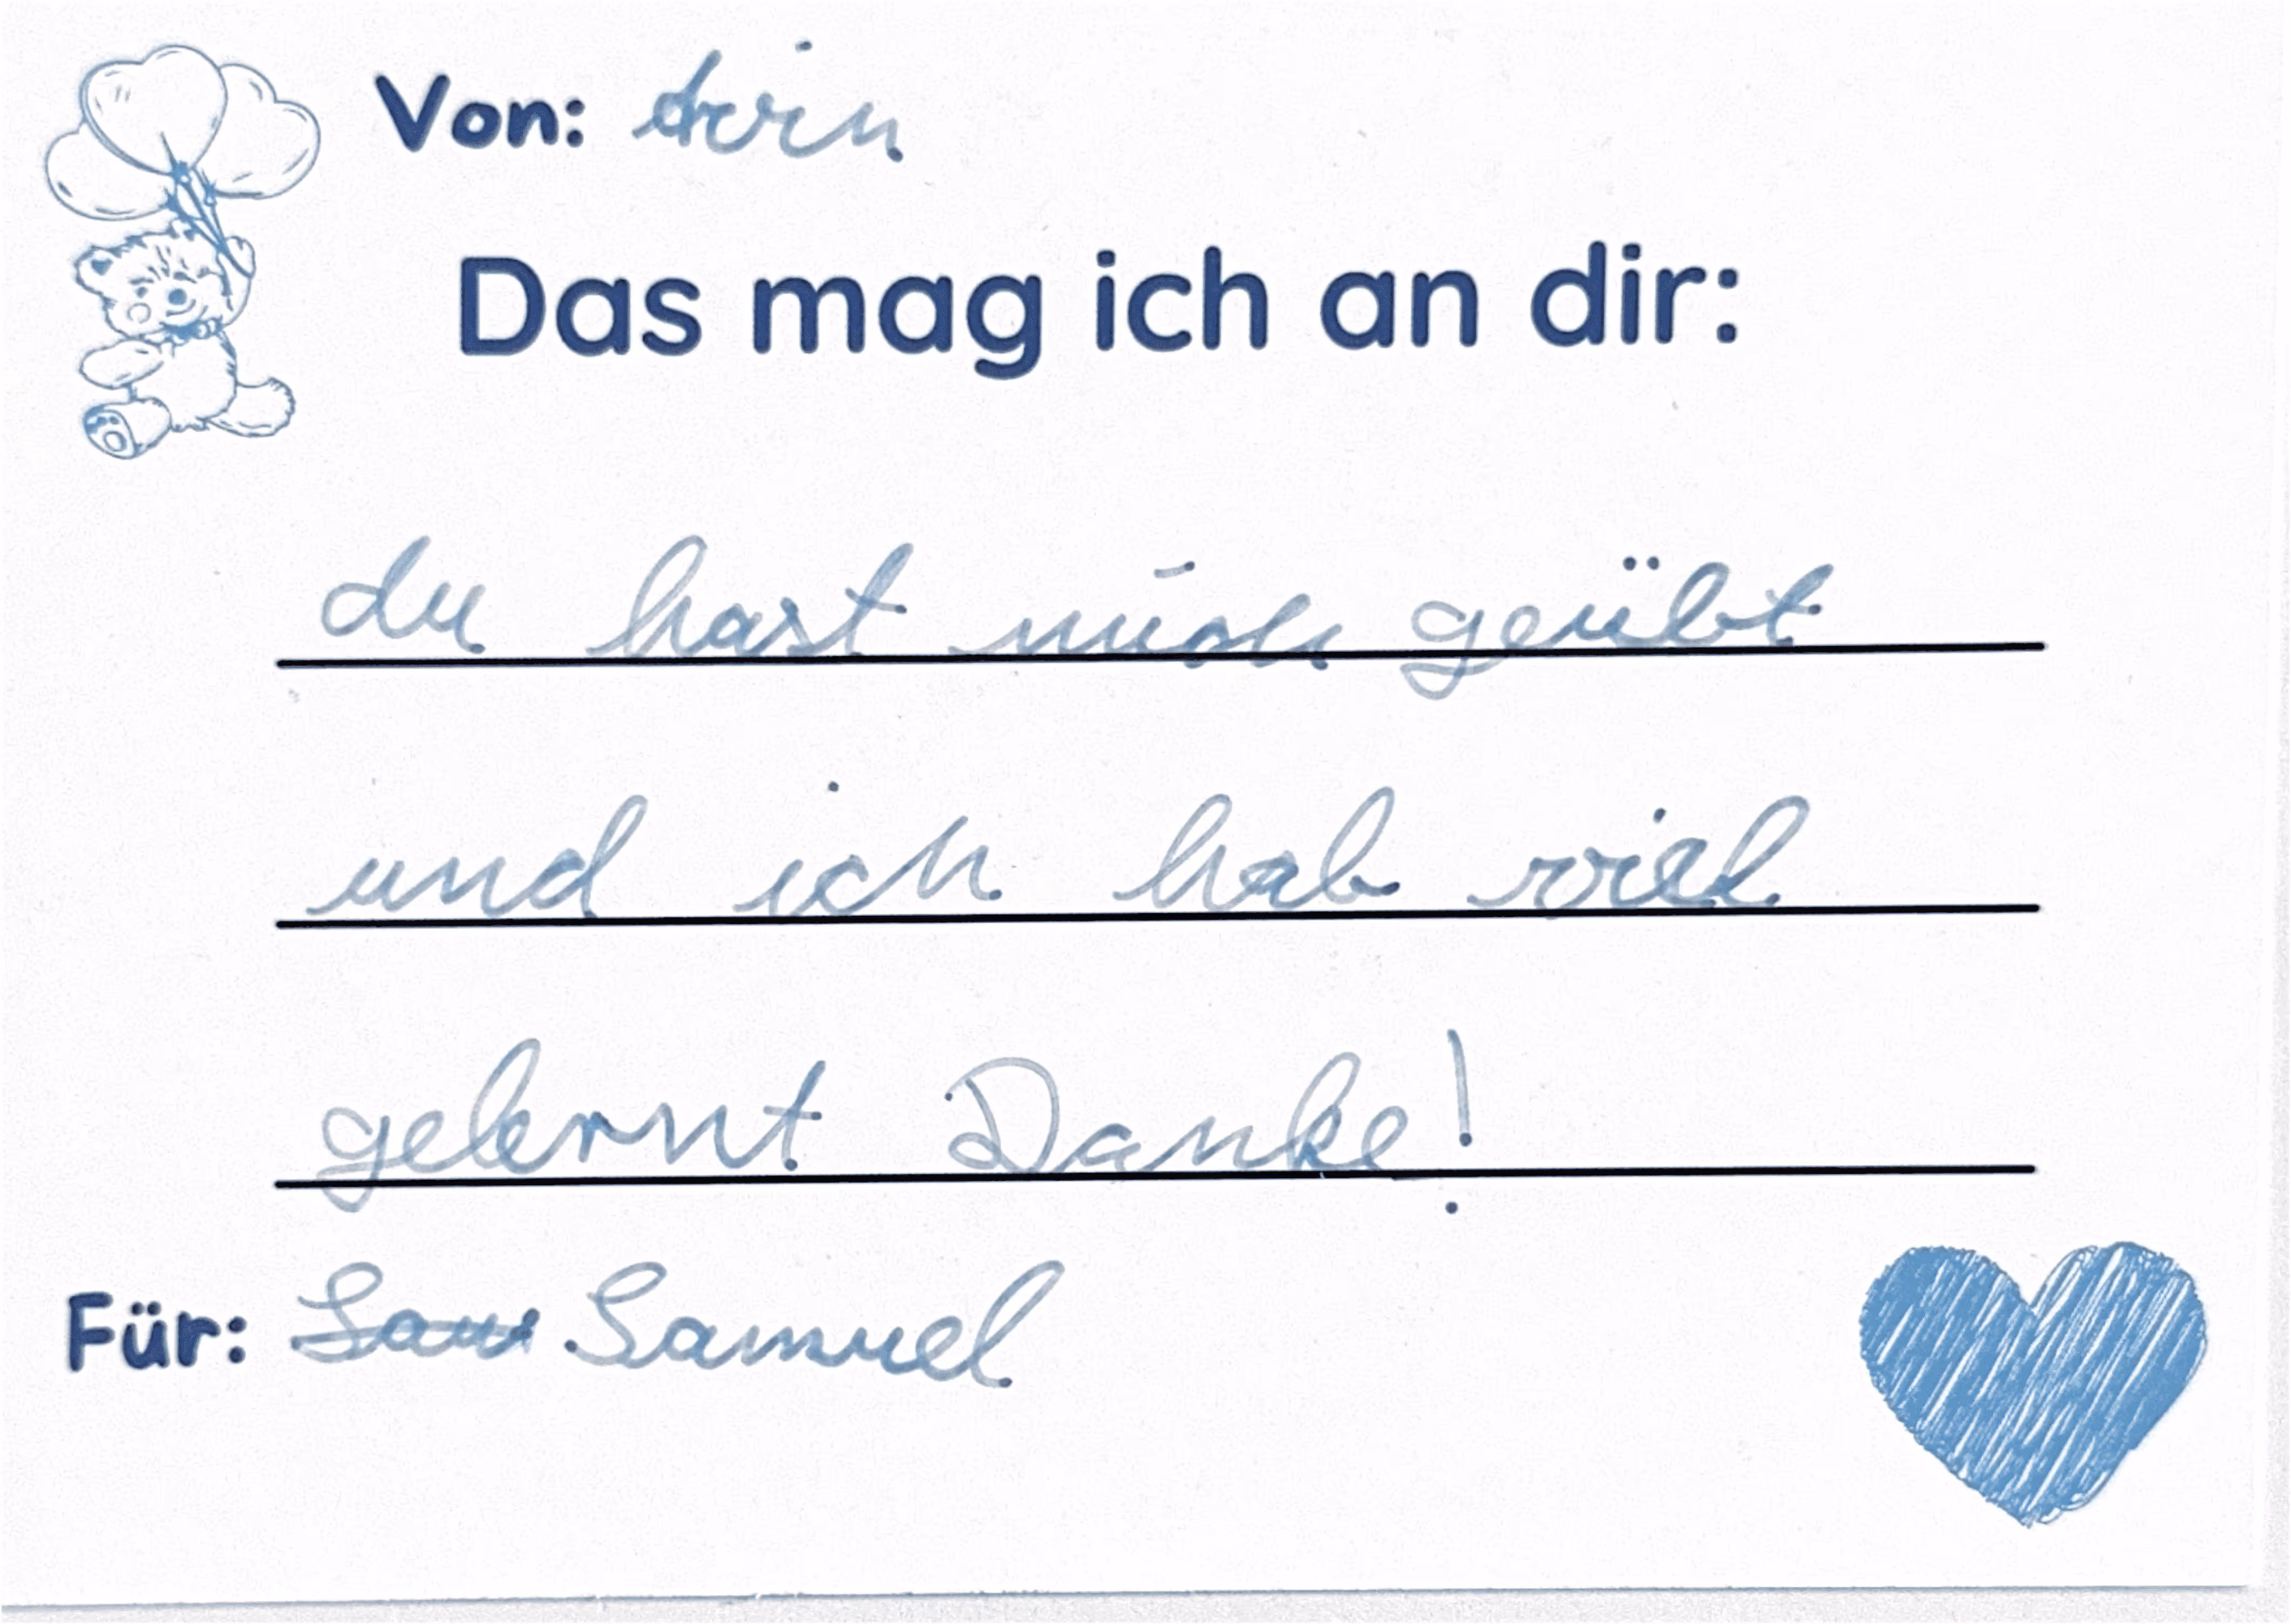 Von:
Das mag ich an dir:
du hast mich geübt
und ich hab viel
gelernt Danke!
Für: Samuel